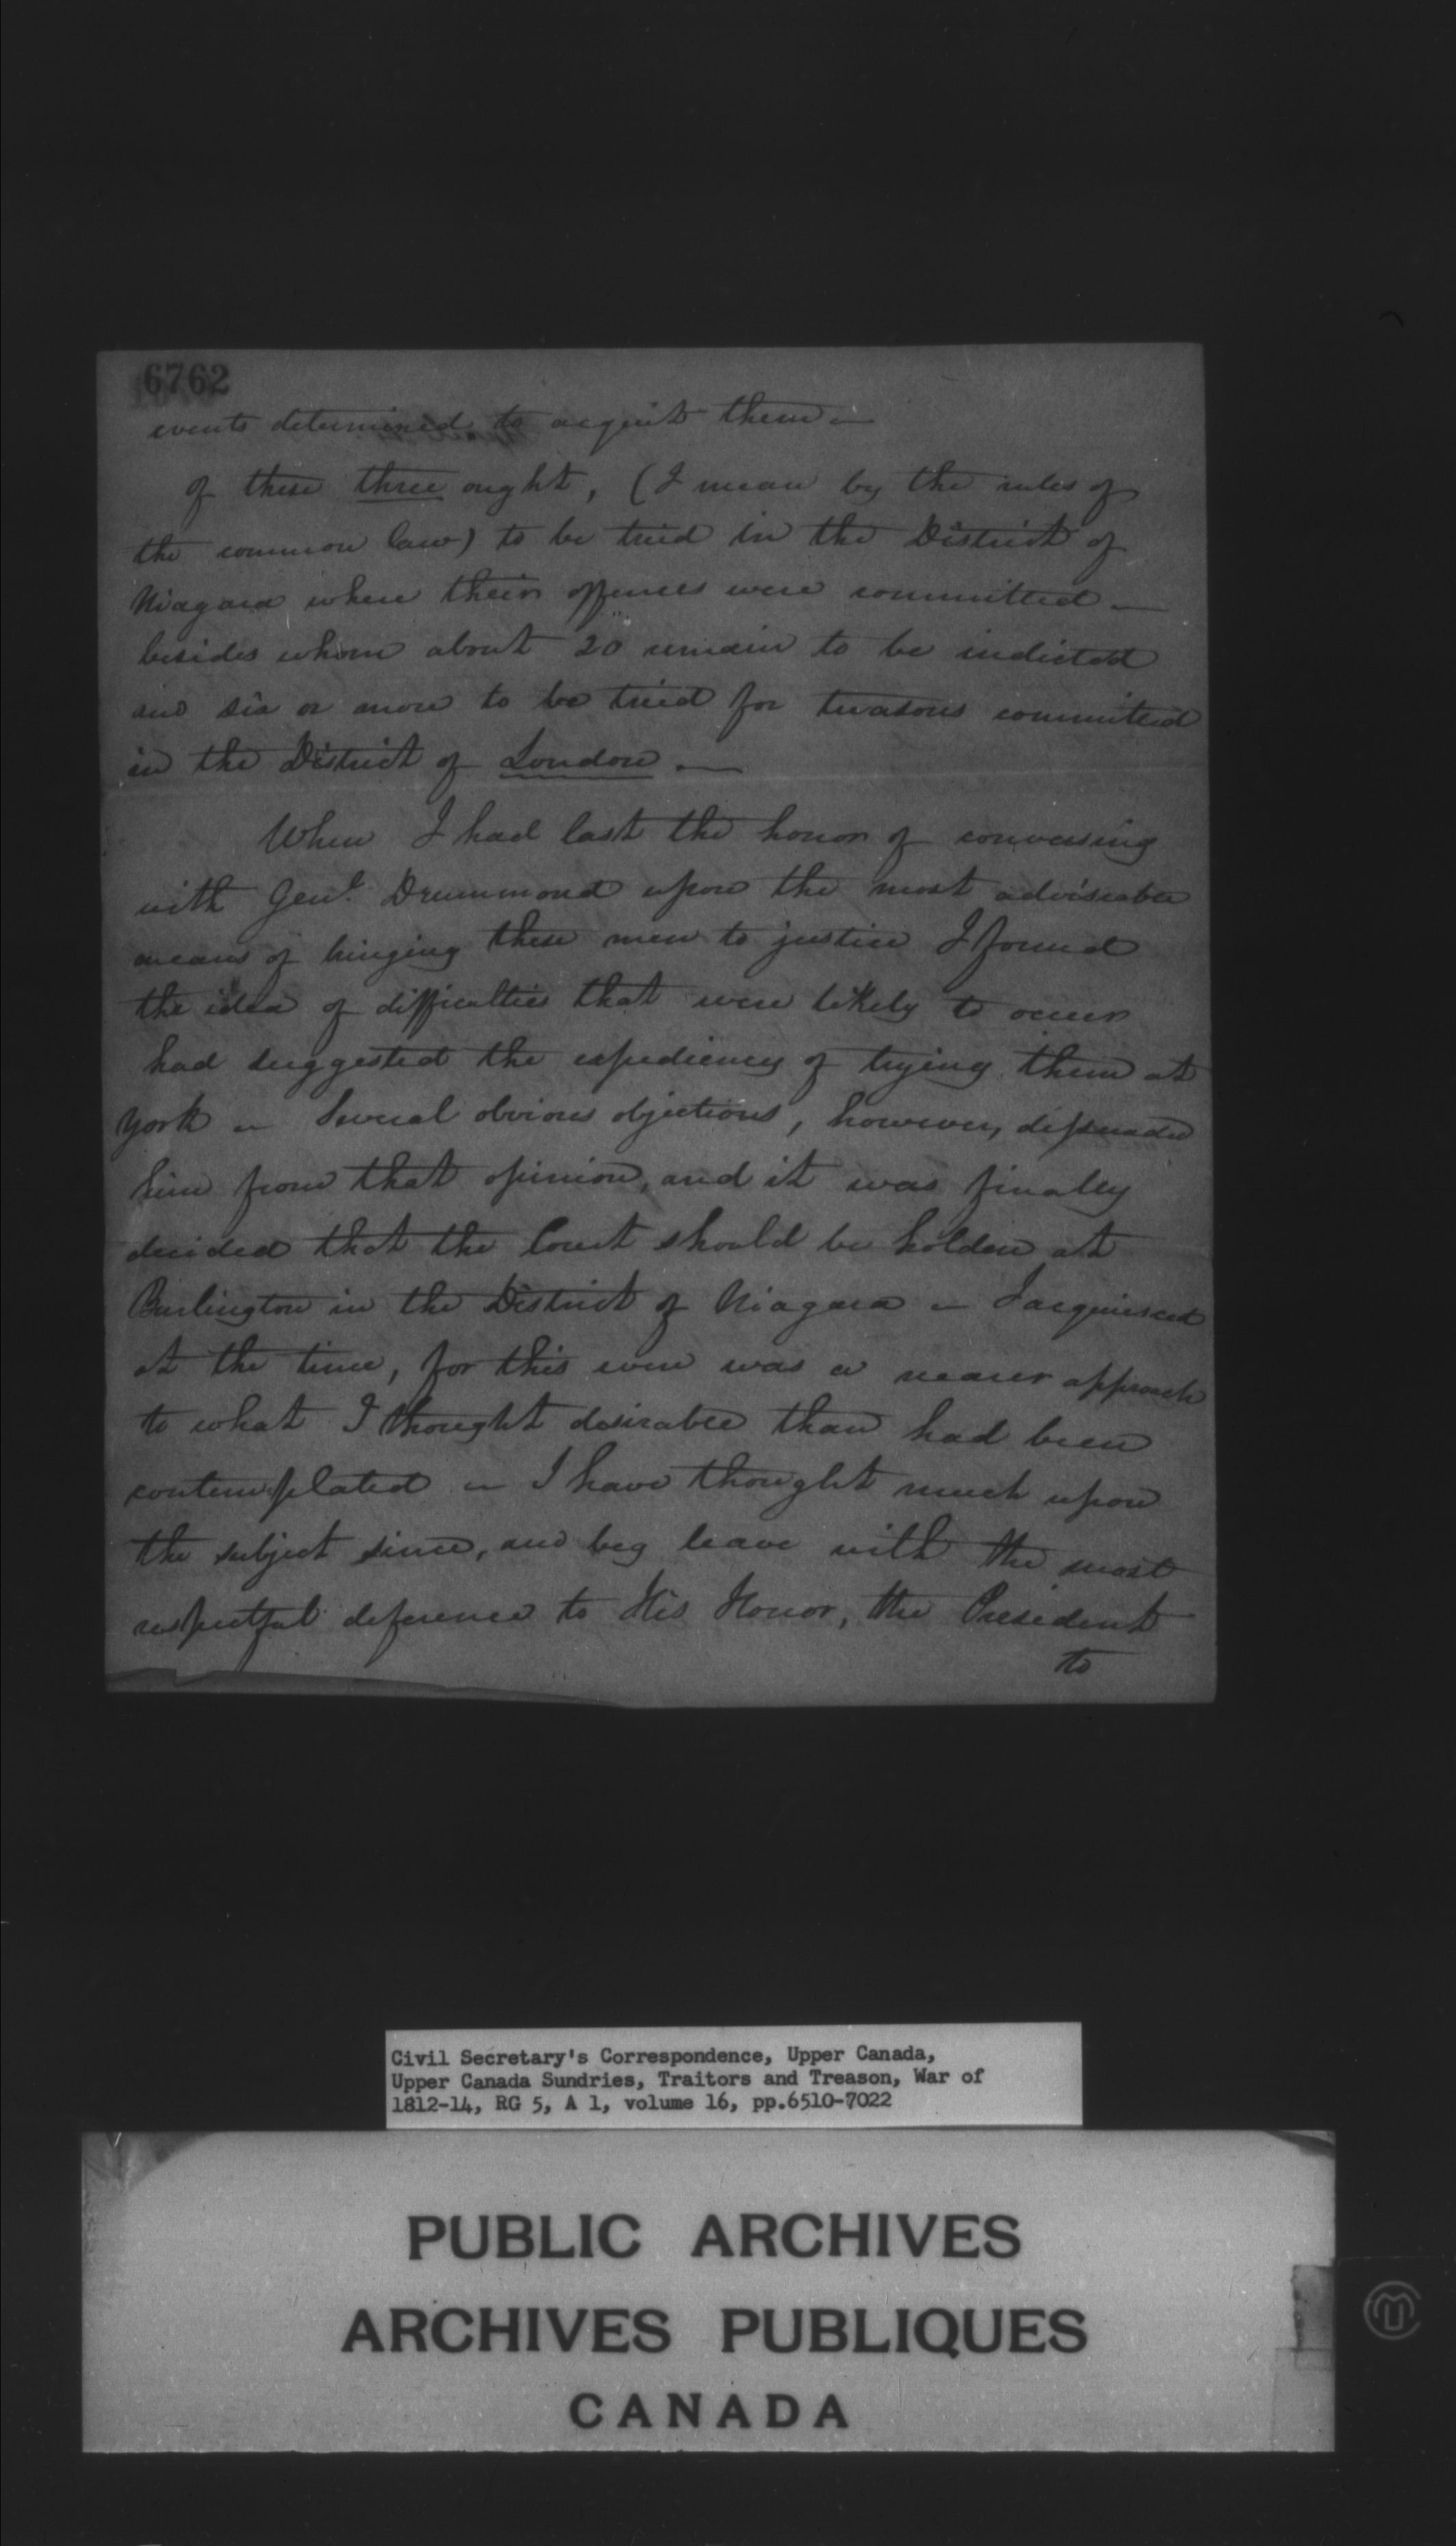 6762
events determined to acquit them —
Of these three ought, (I mean by the rules of
the common law) to be tried in the District of
Niagara where their offences were committed —
besides whom about 20 remain to be indicted
and six or more to be tried for treasons committed
in the District of London —
When I had last the honor of conversing
with Genl. Drummond upon the most adviseable
means of bringing these men to justice I found
the idea of difficulties that were likely to occur
had suggested the expediency of trying them at
York — Several obvious objections, however, dissuaded
him from that opinion, and it was finally
decided that the Court should be holden at
Burlington in the District of Niagara — I acquiesced
at the time, for this even was a nearer approach
to what I thought desirable than had been
contemplated — I have thought much upon
the subject since, and beg leave with the most
respectful deference to His Honor, the President
to
Civil Secretary's Correspondence, Upper Canada,
Upper Canada Sundries, Traitors and Treason, War of
1812-14, RG 5, A 1, volume 16, pp.6510-7022
PUBLIC ARCHIVES
ARCHIVES PUBLIQUES
CANADA